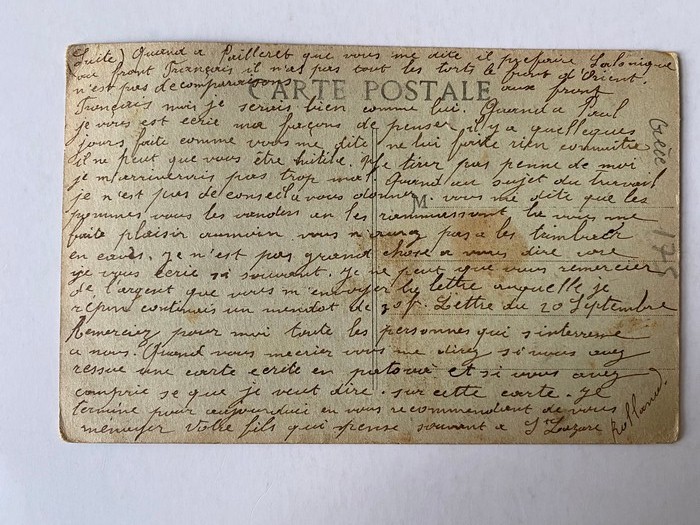 (Suite) Quand a Pailleret que vous me dite il prefaire Salonique
au front Français il n'as pas tout les torts le front d'Orient
n'est pas de comparaisons aux front
CARTE POSTALE
Français moi je serais bien comme lui. Quand a Paul
je vous est ecrie ma façons de penser il y a quelleques
jours faite comme vous me dite ne lui faite rien connaitre
il ne peut que vous être nuitible. Ne tirer pas penne de moi
je m'arriverais pas trop mal. Quand au sujet du travail
je n'est pas de conseil a vous donner. vous me dite que les
M
pommes vous les vendus en les rammassant la vous me
faite plaisir aumoin vous n'aurez pas a les trimbaler
en caves. Je n'est pas grand chose a vous dire vore
je vous ecrie si souvant. Je ne peut que vous remercier
de l'argent que vous m'envoyer la lettre auquelle je
répons contenais un mandat de 20f. Lettre du 20 Septembre
Remerciez pour moi toute les personnes qui s'interresse
a nous. Quand vous mecrier vous me direz si vous avez
ressue une carte ecrite en patois et si vous avez
comprie se que je veut dire sur cette carte. Je
termine pour aujourduí en vous recommendient de vous
ménager Votre fils qui pense souvant a St Lazare
Rolland.
Grèce
175